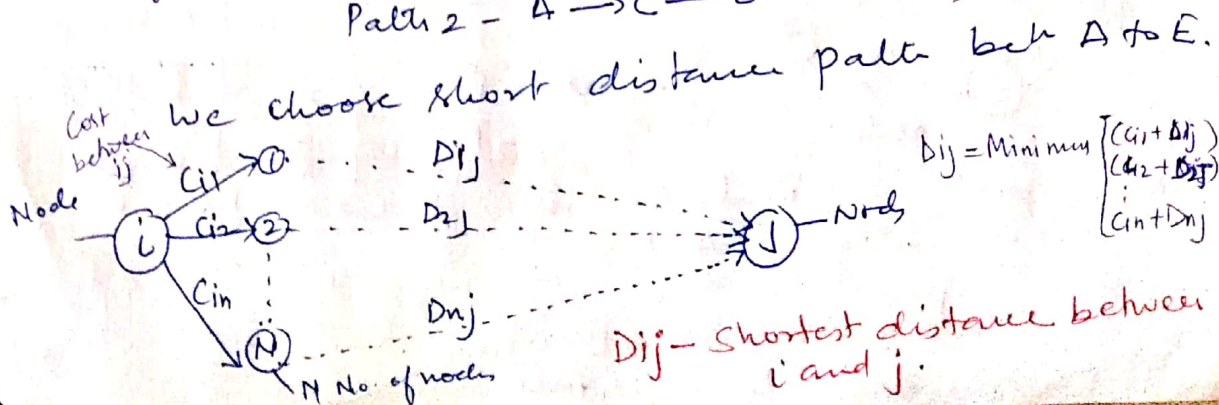 Path 2 - A → C
We choose short distance path beth A to E.
Cost
between
ij
Node
i
Ci1
1
D1j
Ci2
2
D2j
Cin
N
Dnj
N No. of nodes
j
Node
Dij = Minimum [(Ci1 + D1j)
(Ci2 + D2j)
⋮
Cin + Dnj
Dij - Shortest distance between
i and j.